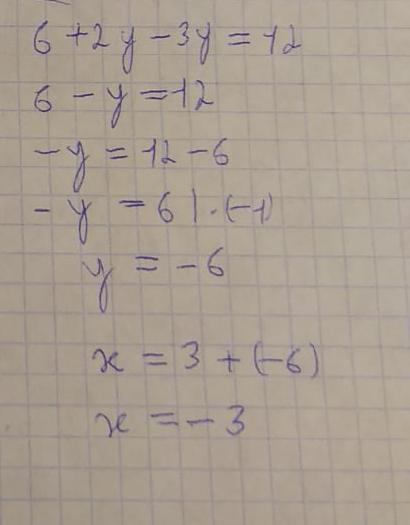 6 + 2y - 3y = 12
6 - y = 12
- y = 12 - 6
- y = 6 | · (-1)
y = - 6
x = 3 + (-6)
x = - 3